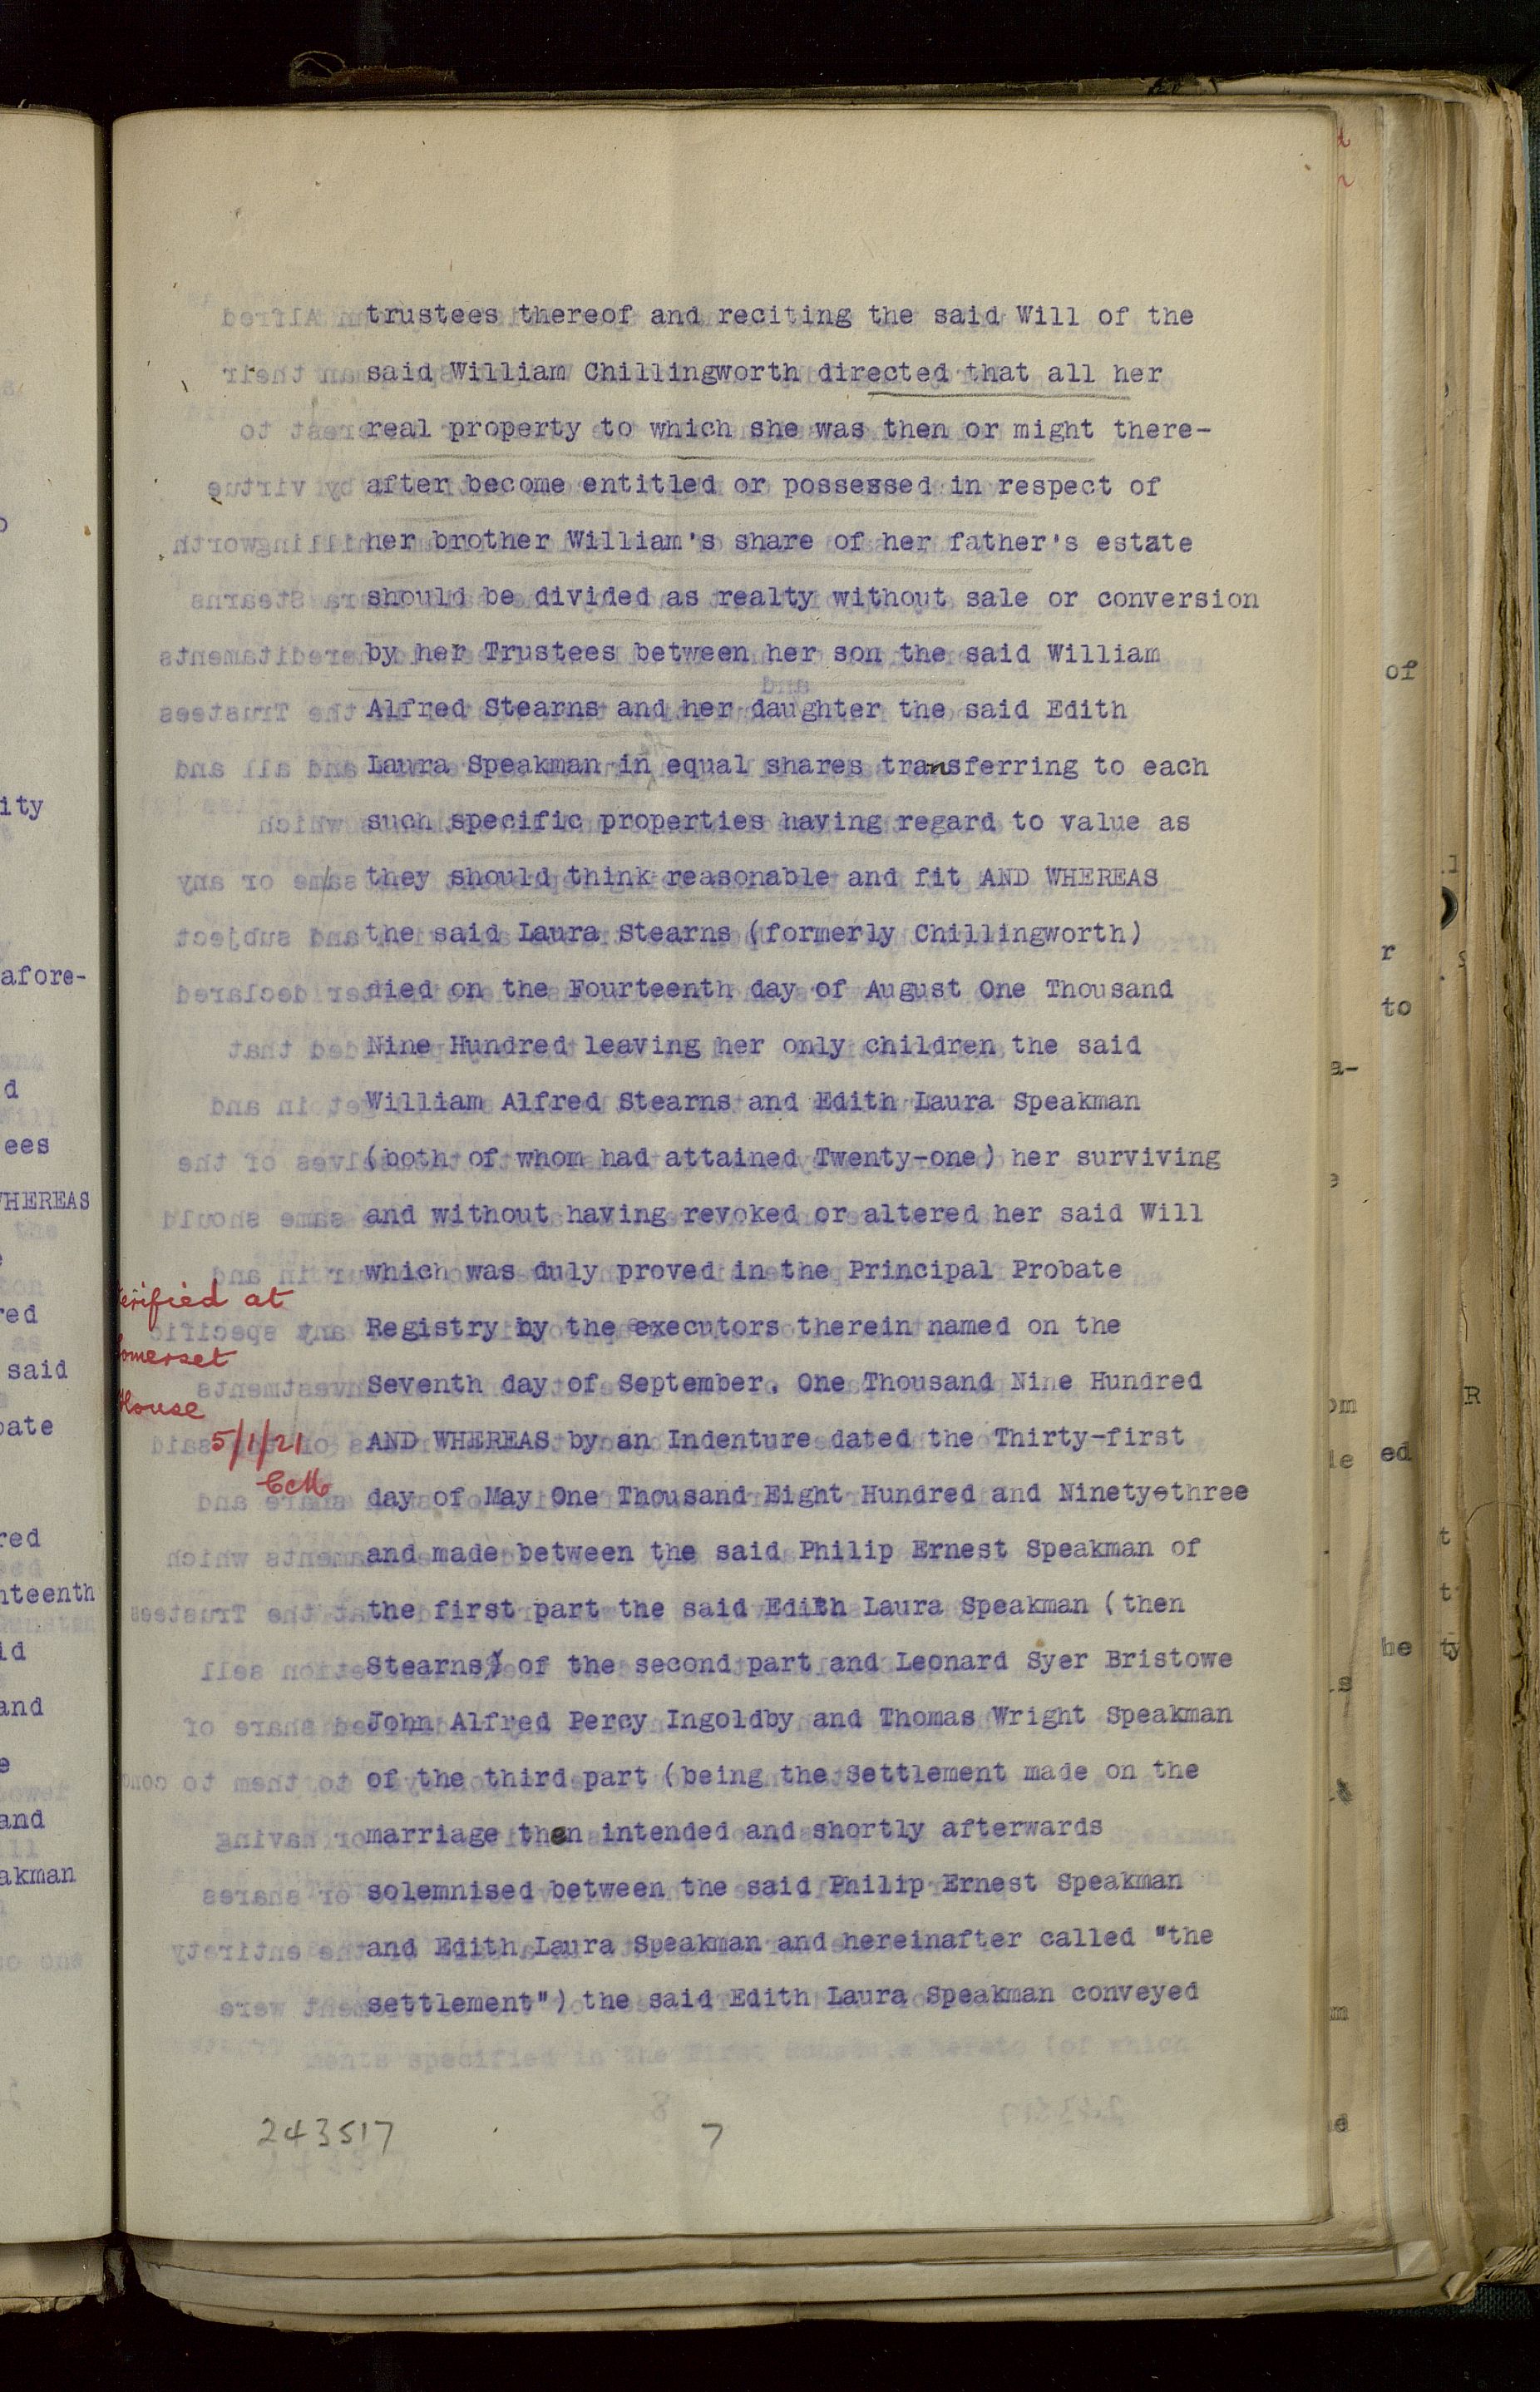 trustees thereof and reciting the said Will of the
said William Chillingworth directed that all her
real property to which she was then or might there-
after become entitled or possessed in respect of
her brother William's share of her father's estate
should be divided as realty without sale or conversion
by her Trustees between her son the said William
Alfred Stearns and her daughter the said Edith
Laura Speakman in equal shares transferring to each
such specific properties having regard to value as
they should think reasonable and fit AND WHEREAS
the said Laura Stearns (formerly Chillingworth)
died on the Fourteenth day of August One Thousand
Nine Hundred leaving her only children the said
William Alfred Stearns and Edith Laura Speakman
(both of whom had attained Twenty-one) her surviving
and without having revoked or altered her said Will
which was duly proved in the Principal Probate
Registry by the executors therein named on the
Seventh day of September. One Thousand Nine Hundred
AND WHEREAS by an Indenture dated the Thirty-first
day of May One Thousand Eight Hundred and Ninety-three
and made between the said Philip Ernest Speakman of
the first part the said Edith Laura Speakman (then
Stearns) of the second part and Leonard Syer Bristowe
John Alfred Percy Ingoldby and Thomas Wright Speakman
of the third part (being the Settlement made on the
marriage then intended and shortly afterwards
solemnised between the said Philip Ernest Speakman
and Edith Laura Speakman and hereinafter called "the
settlement") the said Edith Laura Speakman conveyed
Verified at
Somerset
House
5/1/21
243517
7
ity
afore-
d
ees
WHEREAS
red
said
bate
red
nteenth
id
and
e
and
akman
of
r
to
ed
he